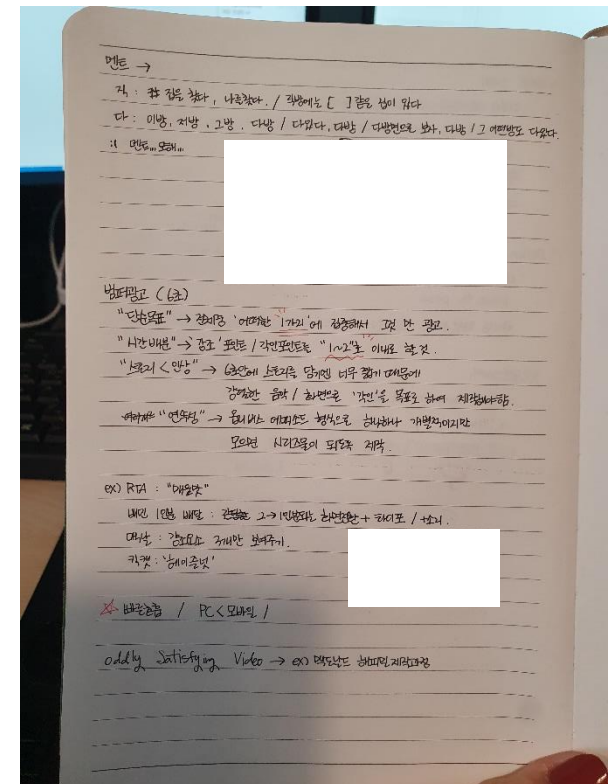 멘트 →
직 : 집을 찾다, 나를찾다. / 직방에는 [ ] 같은 집이 있다
다 : 이방, 저방, 그방, 다방 / 다있다, 다방 / 다방면으로 보자, 다방 / 그 어떤방도 다있다.
범퍼광고 (6초)
"단순목표" → 장비중 '어떠한 1가지'에 집중해서 그것 만 광고.
"시간배분" → 강조 포인트 / 각인포인트를 "1~2"초 이내로 할 것.
"스토리 < 인상" → 6초안에 스토리를 담기엔 너무 짧기 때문에
강렬한 음악 / 화면으로 '각인'을 목표로 하여 제작해야함.
"연속성" → 옴니버스 에피소드 형식으로 하나하나 개별적이지만
모으면 시리즈물이 되도록 제작.
ex) RTA : "매운맛"
배민 1인분 배달 : 2→1인분되는 화면전환 + 타이포 / +소리.
: 강조요소 3개만 보여주기.
킷캣 : '헤이즐넛'
☆ 빠른호흡 / PC < 모바일 /
oddly Satisfying Video → ex) 맥도날드 해피밀 제작과정